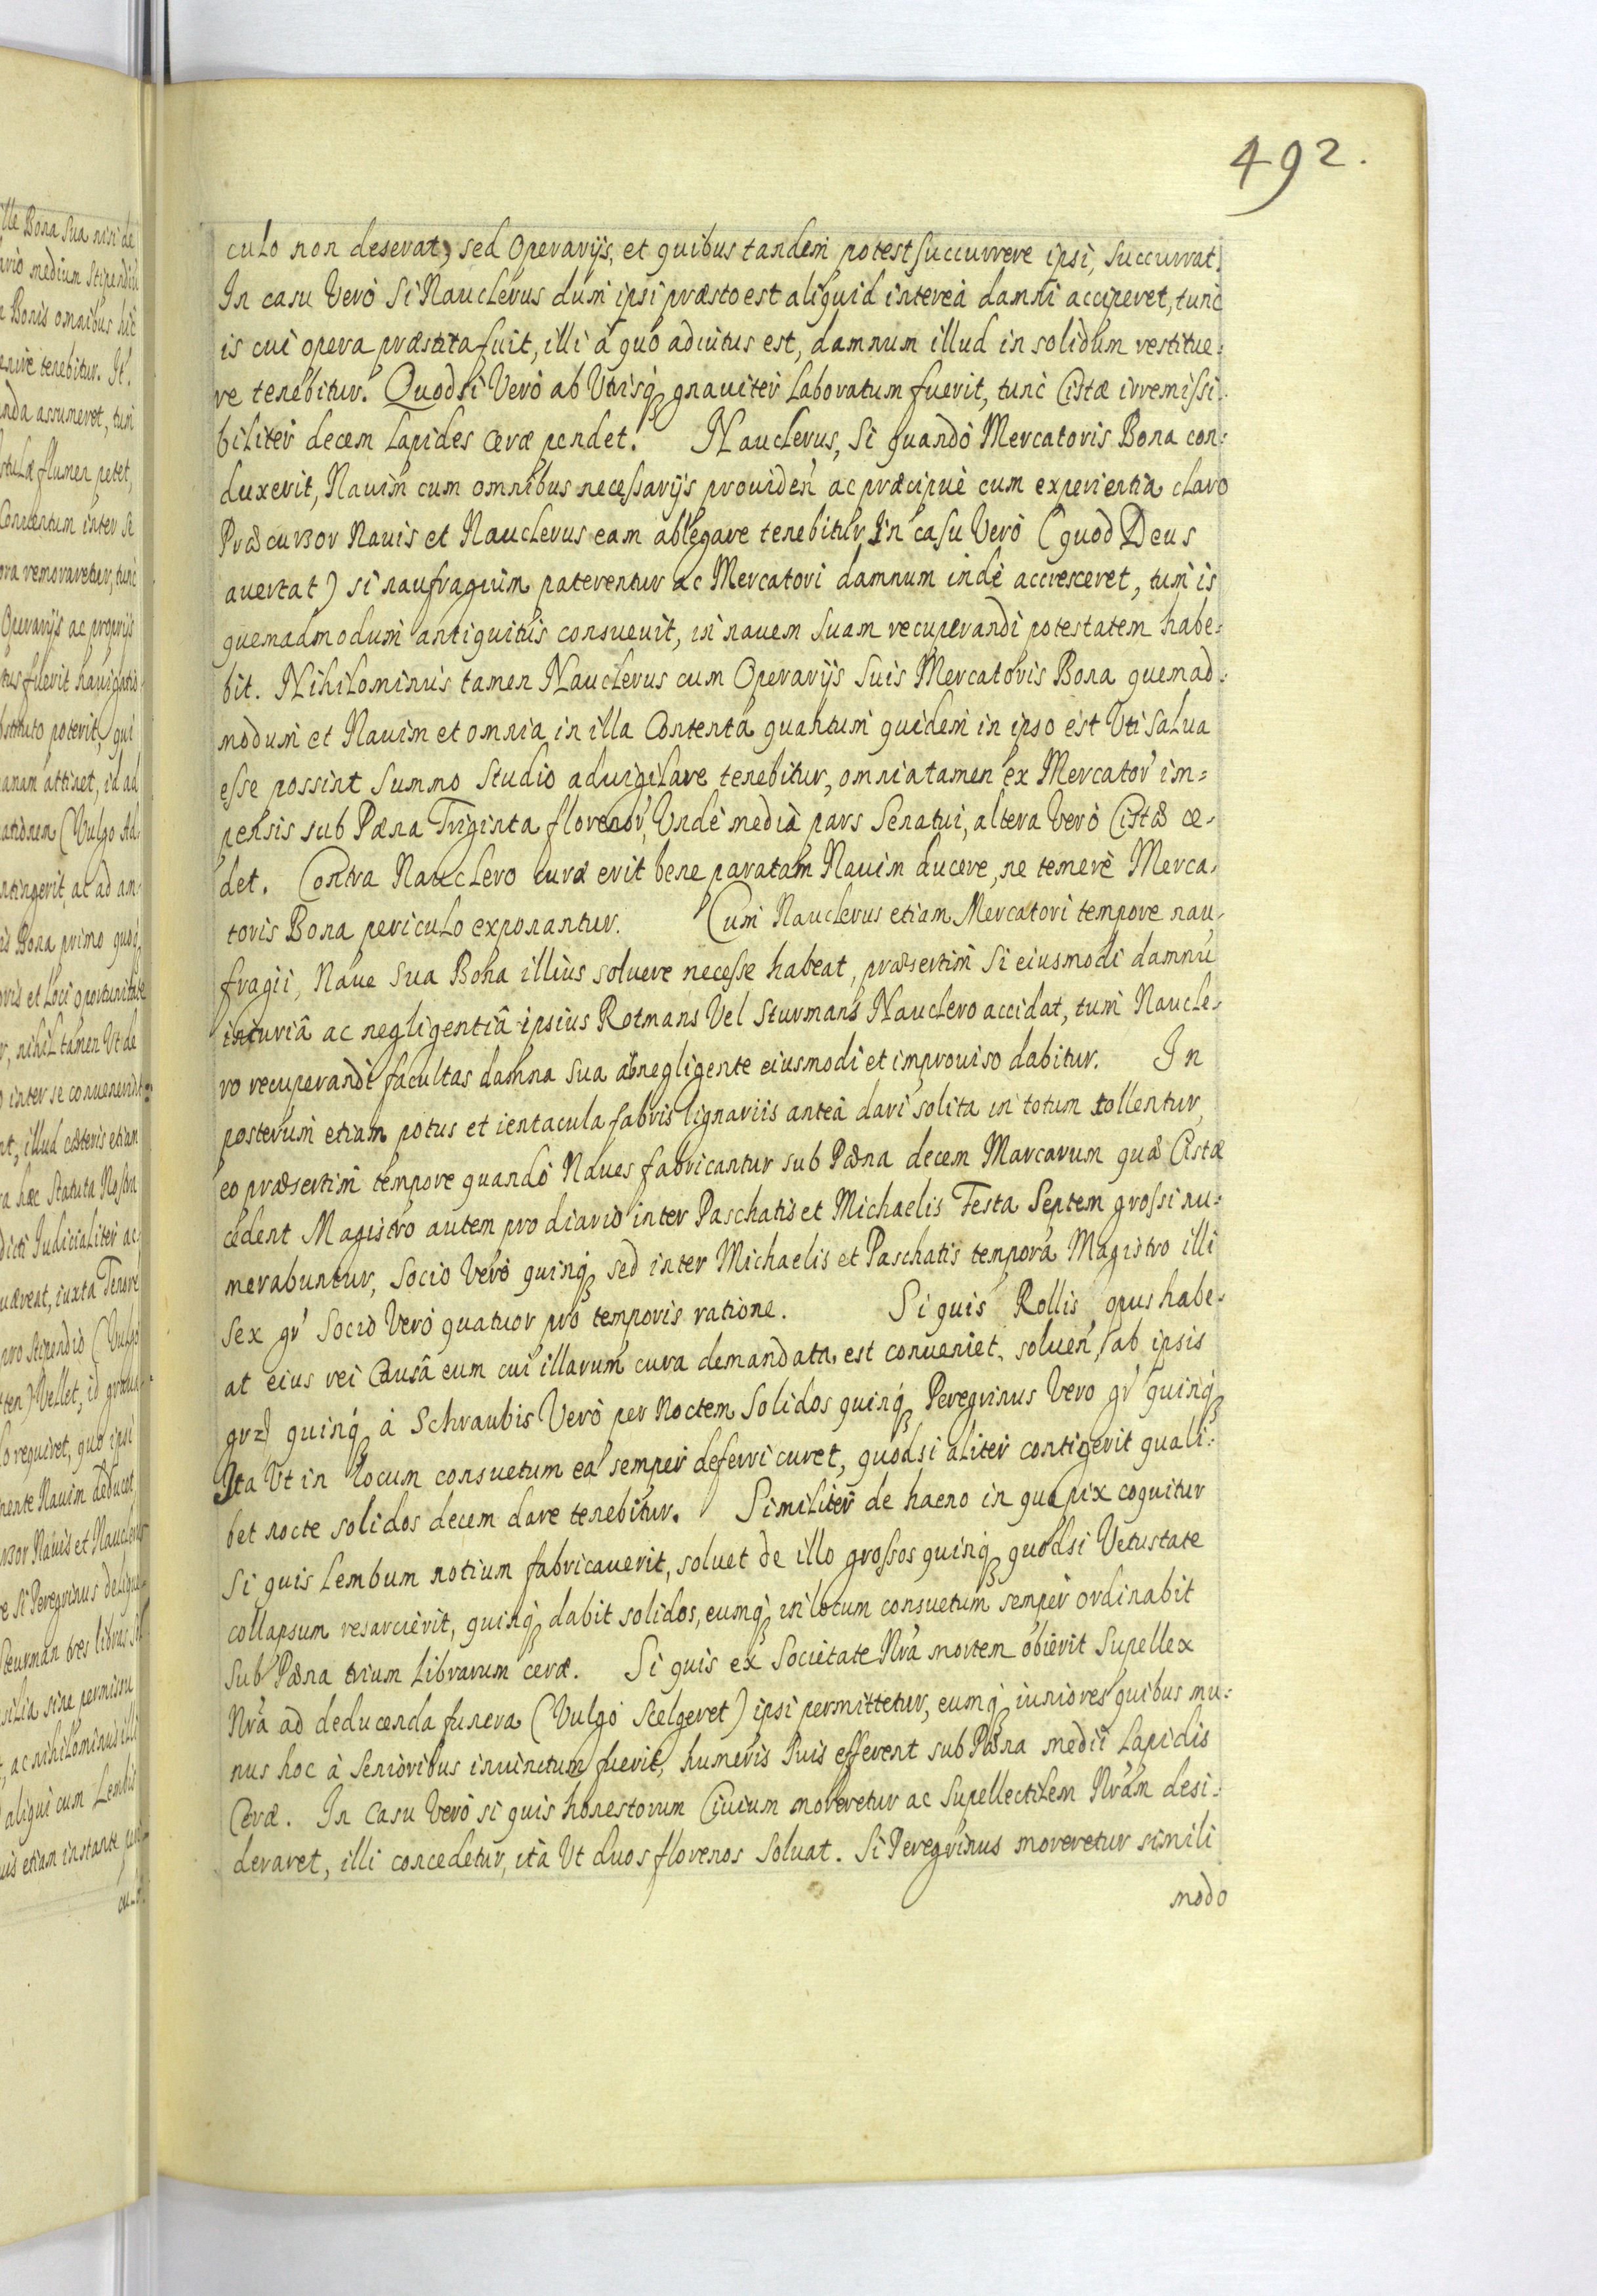 492.
culo non deserat, sed Operarijs, et quibus tandem potest succurrere ipsi, succurrat.
In casu Verò Si Nauclerus dum ipsi præsto est aliquid intereà damni acciperet, tunc
is cui opera præstita fuit, illi à quo adiutus est, damnum illud in solidum restitue:
re tenebitur. Quodsi Verò ab Utrisq; gnauiter Laboratum fuerit, tunc Cistæ irremissi:
biliter decem Lapides ceræ pendet. Nauclerus, Si quandò Mercatoris Bona con:
duxerit, Nauim cum omnibus necessarijs prouiden̄ ac præcipuè cum experientia claro
Præcursor Nauis et Nauclerus eam ablegare tenebitur In casu Verò (quod Deus
auertat) si naufragium paterentur ac Mercatori damnum indè accresceret, tum is
quemadmodum antiquitùs consueuit, in nauem Suam recuperandi potestatem habe:
bit. Nihilominus tamen Nauclerus cum Operarijs Suis Mercatoris Bona quemad:
modum et Nauim et omnia in illa Contenta quantum quidem in ipso est Uti Salua
esse possint Summo Studio aduigilare tenebitur, omnia tamen ex Mercator' im=
pensis sub Pæna Triginta florenor', Undè media pars Senatui, altera Verò Cistæ ce:
det. Contra Nauclero curæ erit bene paratam Nauim ducere, ne temerè Merca:
toris Bona periculo exponantur. Cum Nauclerus etiam Mercatori tempore nau:
fragii, Naue Sua Bona illius soluere necesse habeat, præsertim Si eiusmodi damnū
incuriâ ac negligentiâ ipsius Rotmans Vel Sturmans Nauclero accidat, tum Naucle:
ro recuperandi facultas damna Sua à negligente eiusmodi et improuiso dabitur. In
posterum etiam potus et ientacula fabris lignariis anteà dari solita in totum tollentur,
eo præsertim tempore quandò Naues fabricantur sub Pæna decem Marcarum quæ Cistæ
cedent Magistro autem pro diario inter Paschatis et Michaelis Festa Septem grossi nu:
merabuntur, Socio Verò quinq; sed inter Michaelis et Paschatis tempora Magistro illi
Sex gr' Socio Verò quatuor pro temporis ratione. Si quis Rollis opus habe:
at eius rei Causâ eum cui illarum cura demandata est conueniet, soluen̄, ab ipsis
quinq; à Schraubis Verò per Noctem Solidos quinq; Peregrinus Vero gr' quinq;
Ita Ut in Locum consuetum ea semper deferri curet, quodsi aliter contigerit quali:
bet nocte solidos decem dare tenebitur. Similiter de haeno in quo pix coquitur
Si quis Lembum notium fabricauerit, soluet de illo grossos quinq; quodsi Vetustate
collapsum resarcierit, quinq; dabit solidos, eumq; in locum consuetum semper ordinabit
Sub Pæna trium Librarum ceræ. Si quis ex Societate Nrâ mortem obierit Supellex
Nrâ ad deducenda funera (Vulgo Selgeret) ipsi permittetur, eumq; iuniores quibus mu:
nus hoc à Senioribus iniunctum fuerit, humeris Suis efferent sub Pæna medii Lapidis
Ceræ. In Casu Verò si quis honestorum Ciuium moreretur ac Supellectilem Nrâm desi:
deraret, illi concedetur, ità Ut duos florenos Soluat. Si Peregrinus moreretur simili
modo